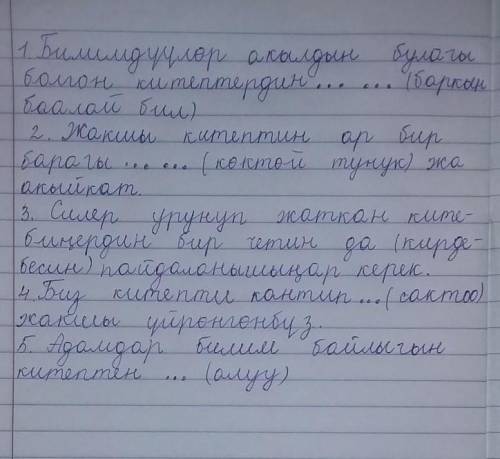 1. Билимдүүлөр акылдын булагы
болгон китептердин... ... (баркын
баалай бил)
2. Жакшы китептин ар бир
барагы ... ... (көктөй тунук) жа
акыйкат.
3. Силер урунуп жаткан ките-
биңердин бир четин да (кирде-
бесин) пайдаланышыңар керек.
4. Биз китепти кантип ... (сактоо)
жакшы үйрөнгөнбүз.
5. Адамдар билим байлыгын
китептен ... (алуу)